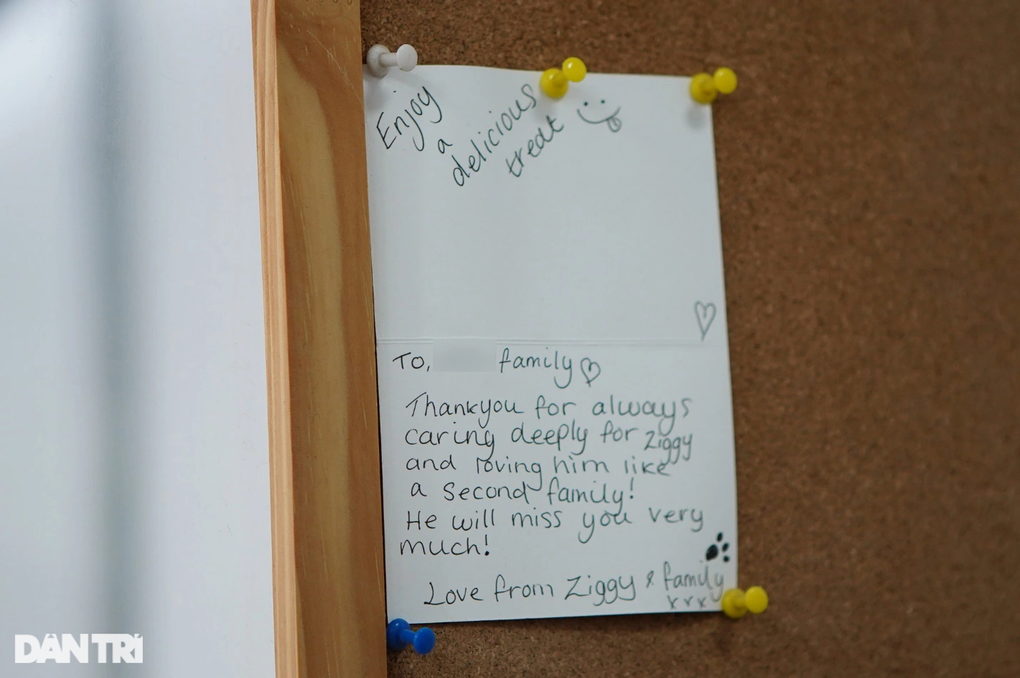 Enjoy
a
delicious
treat
To, family
Thankyou for always
caring deeply for Ziggy
and loving him like
a second family!
He will miss you very
much!
Love from Ziggy & family
xxx
DÂN TRÍ